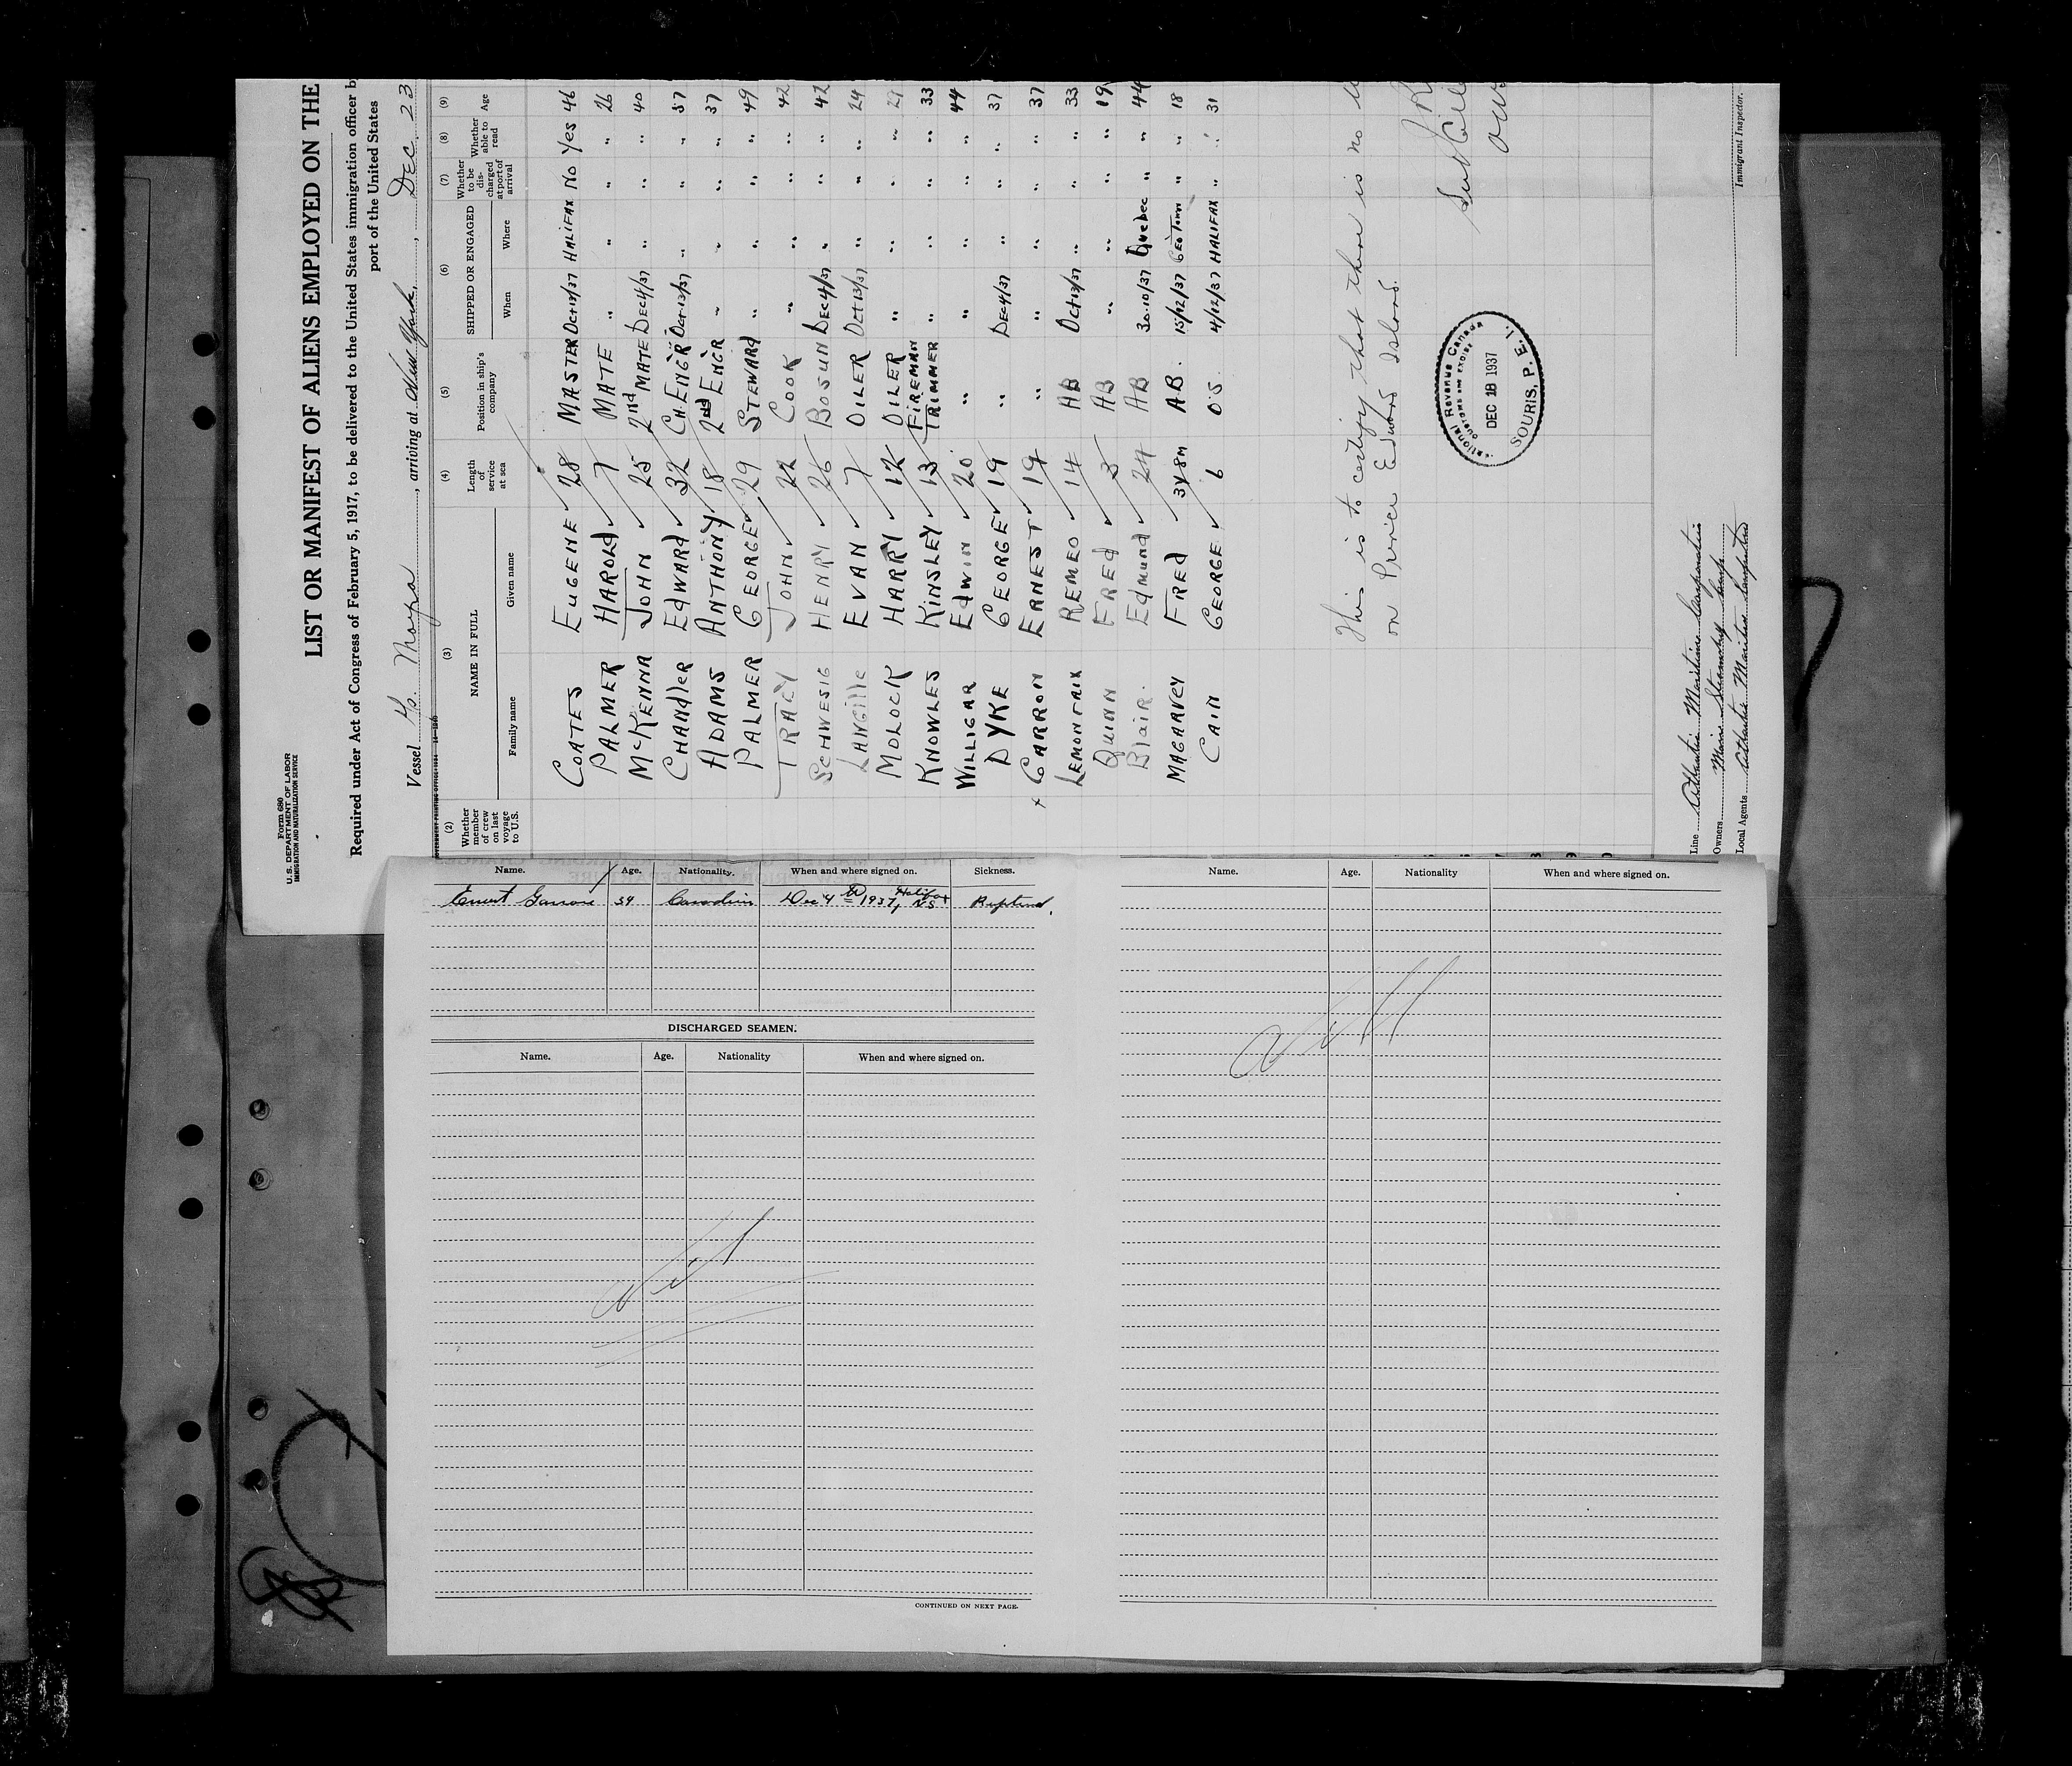 Form 680
U.S. DEPARTMENT OF LABOR
IMMIGRATION AND NATURALIZATION SERVICE
LIST OR MANIFEST OF ALIENS EMPLOYED ON THE
Required under Act of Congress of February 5, 1917, to be delivered to the United States immigration officer b
port of the United States
Vessel , arriving at New York, , Dec. 23
(2) (3) (4) (5) (6) (7) (8) (9)
Whether member of crew on last voyage to U.S. NAME IN FULL Family name Given name Length of service at sea Position in ship's company SHIPPED OR ENGAGED When Where Whether to be discharged at port of arrival Whether able to read Age
COATES EUGENE 28 MASTER Oct 13/37 HALIFAX No Yes 46
PALMER HAROLd 7 MATE " " " " 26
McKENNA JOHN 25 2nd MATE Dec 4/37 " " " 40
CHANdlER EdWARd 32 CH. ENG'R Oct-13/37 " " " 57
ADAMS ANTHONY 18 2nd ENG'R " " " " 37
PALMER GEORGE 29 STEWARd " " " " 49
TRACEY JOHN 22 COOK " " " " 42
SCHWESIG HENRY 26 BOSUN Dec 4/37 " " " 42
LANGillE EVAN 7 OILER Oct 13/37 " " " 24
MOLOCK HARRY 12 OILER " " " " 29
KNOWLES KINSLEY 13 FIREMAN TRIMMER " " " " 33
WILLIGAR EdWIN 20 " " " " " 44
DYKE GEORGE 19 " Dec 4/37 " " " 37
x GARRON ERNEST 19 " " " " " 37
LEMONFRIX REMEO 14 AB Oct 13/37 " " " 33
QUINN FREd 3 AB " " " " 19
Blair. Edmund 24 AB 30.10/37 Quebec " " 44
MAGARVEY FREd 3Y8M AB. 15/12/37 GEO TOWN " " 18
CAIN GEORGE 6 O.S. 4/12/37 HALIFAX " " 31
This is to certify that there is no
on Prince Edward Island.
National Revenue Canada
CUSTOMS AND EXCISE
DEC 18 1937
SOURIS, P. E. I.
Line Atlantic Maritime
Owners
Local Agents Atlantic
Immigrant Inspector.
Name. Age. Nationality. When and where signed on. Sickness.
Ernest Garron 39 Canadian Dec 4th 1937, Halifax NS
DISCHARGED SEAMEN.
Name. Age. Nationality When and where signed on.
Nil
CONTINUED ON NEXT PAGE.
Name. Age. Nationality When and where signed on.
Nil